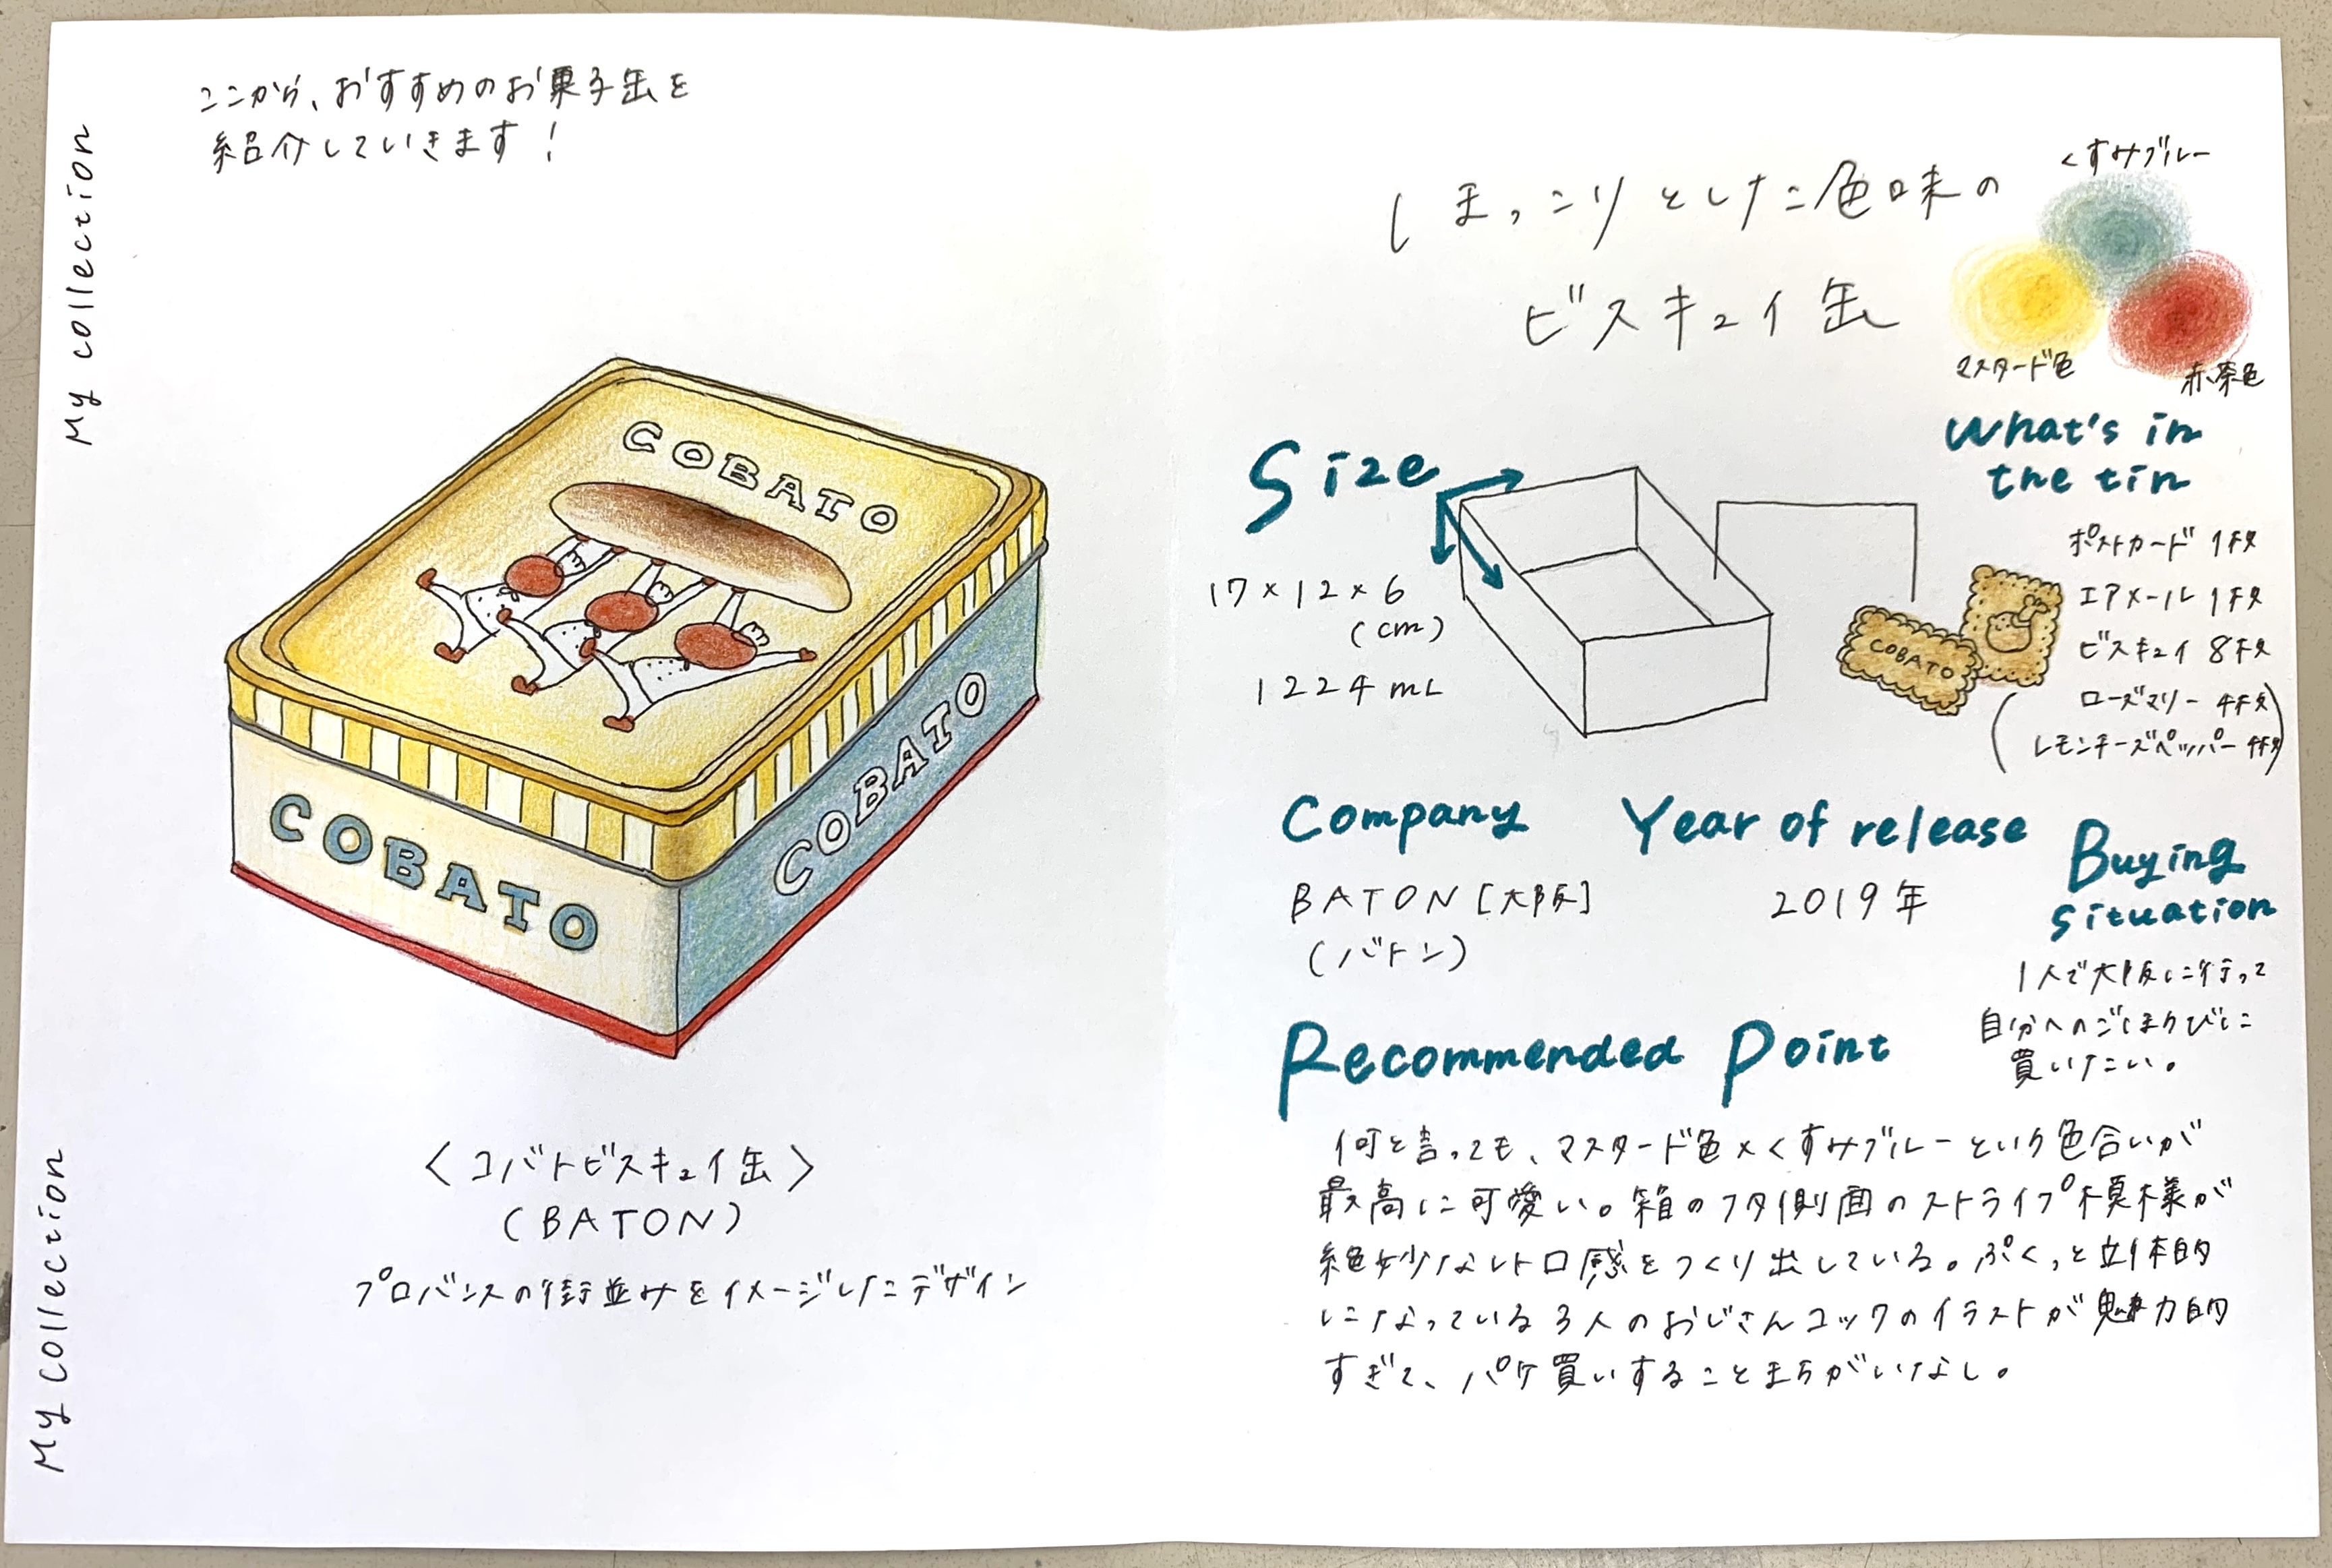 My collection
ここから、おすすめのお菓子缶を
紹介していきます！
COBATO
COBATO
COBATO
〈コバトビスキュイ缶〉
(BATON)
プロバンスの街並みをイメージしたデザイン
My collection
しまっこりとした色味の
ビスキュイ缶
くすみブルー
マスタード色
赤茶色
Size
17×12×6
(cm)
1224mL
What's in
the tin
ポストカード 1枚
エアメール 1枚
ビスキュイ 8枚
(ローズマリー 4枚
レモンチーズペッパー 4枚)
COBATO
Company
BATON[大阪]
(バトン)
Year of release
2019年
Buying
situation
1人で大阪に行って
自分へのごほうびに
買いたい。
Recommended Point
何と言っても、マスタード色×くすみブルーという色合いが
最高に可愛い。箱のフタ側面のストライプ模様が
絶妙なレトロ感をつくり出している。ぷくっと立体的
になっている3人のおじさんコックのイラストが魅力的
すぎて、パケ買いすることまちがいなし。